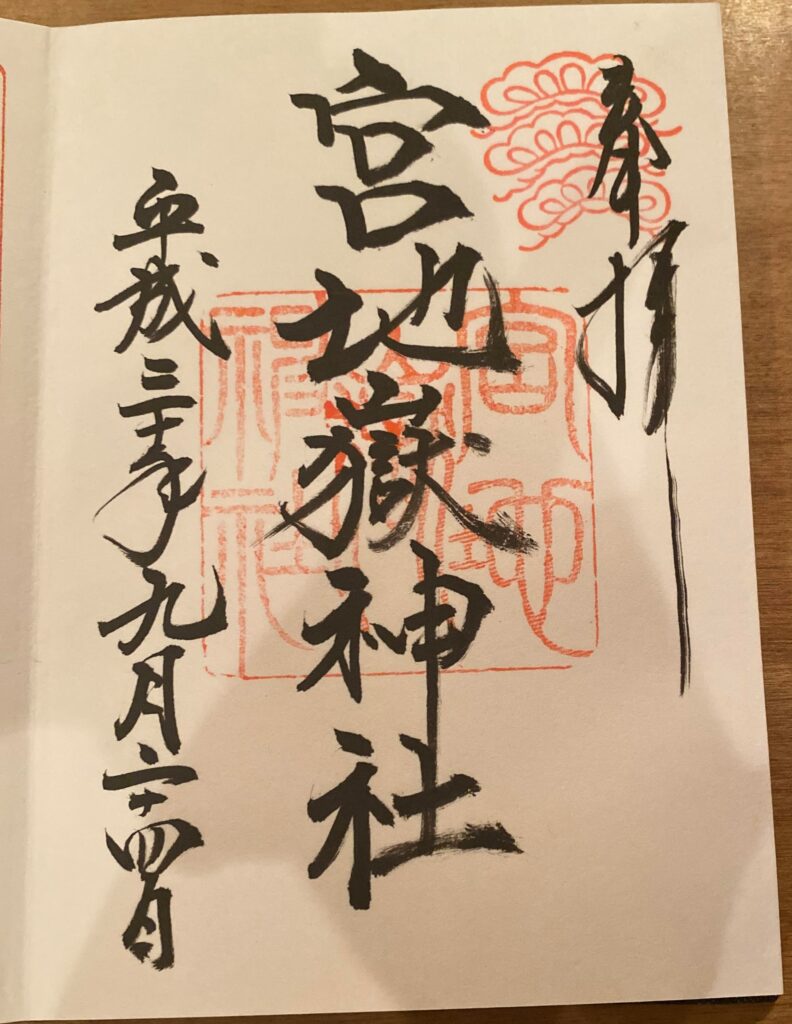 奉拝
宮地嶽神社
平成三十年九月二十四日
宮地嶽神社